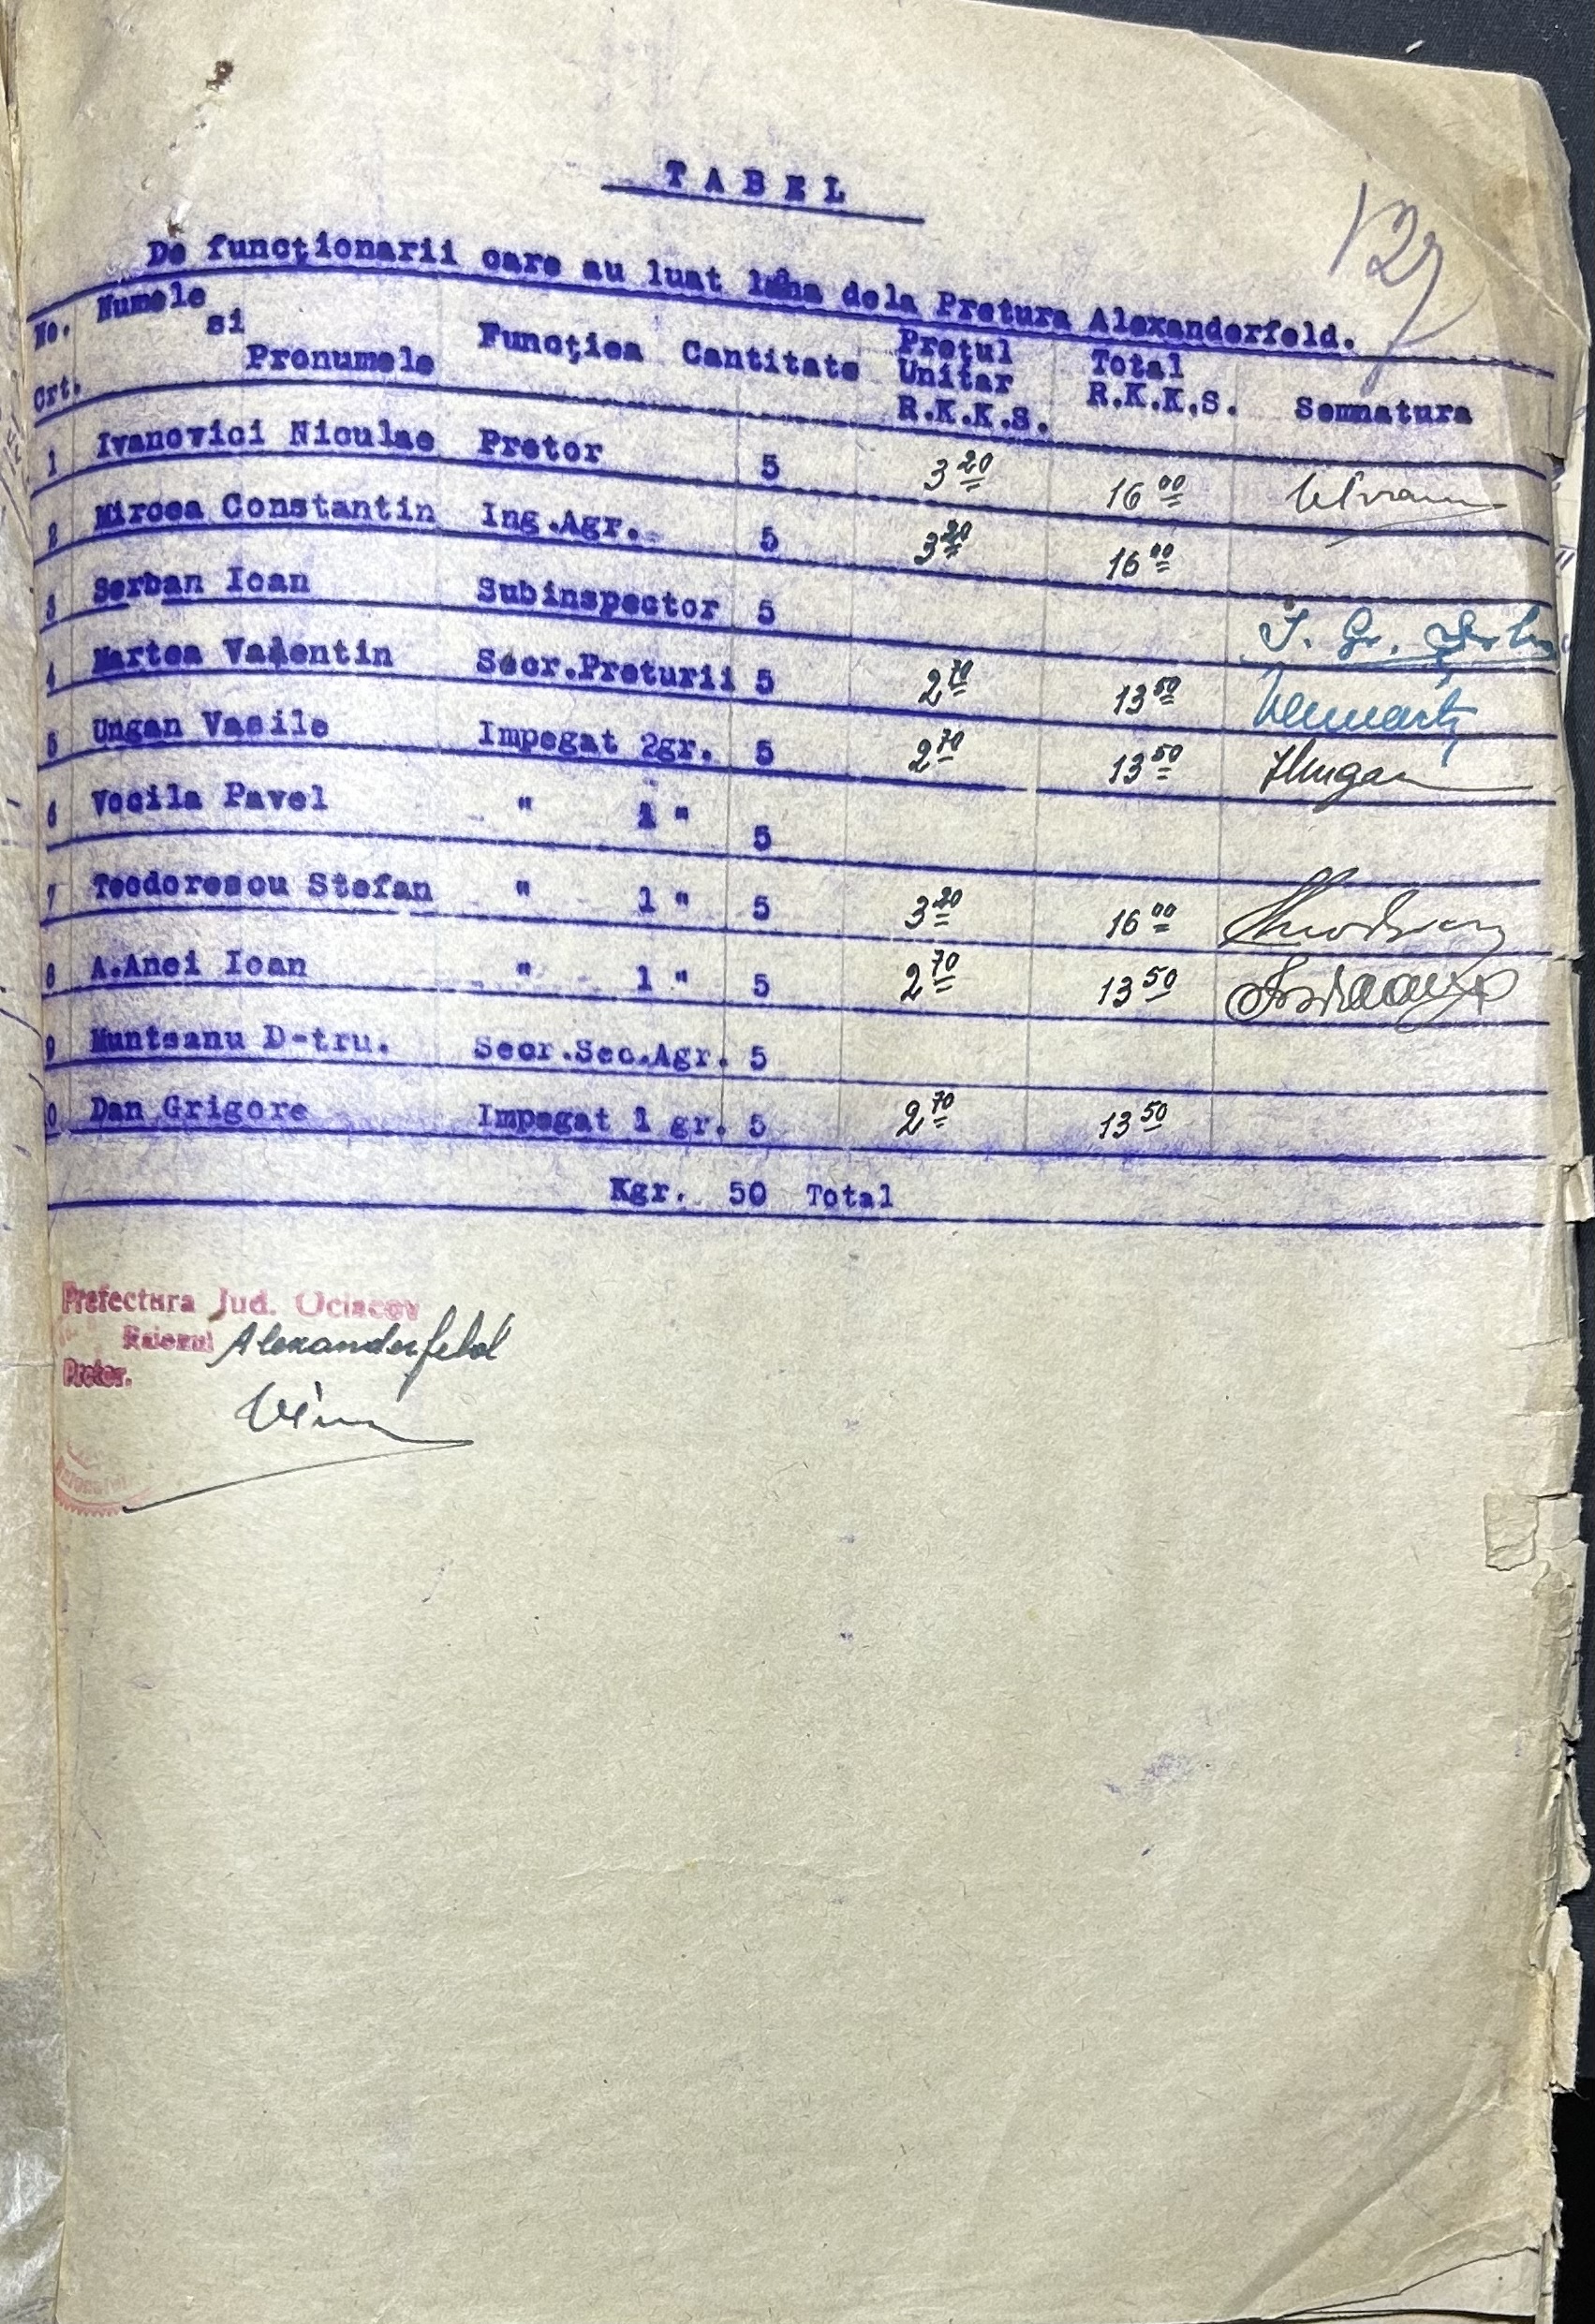 TABEL
127
De funcţionarii care au luat lâna dela Pretura Alexanderfeld.
No. Crt. Numele si Pronumele Funcţiea Cantitate Preţul Unitar R.K.K.S. Total R.K.K.S. Semnatura
1 Ivanovici Niculae Pretor 5 3 20 16 00
2 Mircea Constantin Ing.Agr. 5 3 20 16 00
3 Serban Ioan Subinspector 5
4 Martea Valentin Secr.Preturii 5 2 70 13 50
5 Ungan Vasile Impegat 2gr. 5 2 70 13 50 Ungan
6 Vocila Pavel " 1 " 5
7 Teodorescu Stefan " 1 " 5 3 20 16 00
8 A.Anei Ioan " 1 " 5 2 70 13 50
9 Muntsanu D-tru. Secr.Sec.Agr. 5
0 Dan Grigore Impegat 1 gr. 5 2 70 13 50
Kgr. 50 Total
Prefectura Jud. Ociacov
Raionul Alexanderfeld
Pretor.